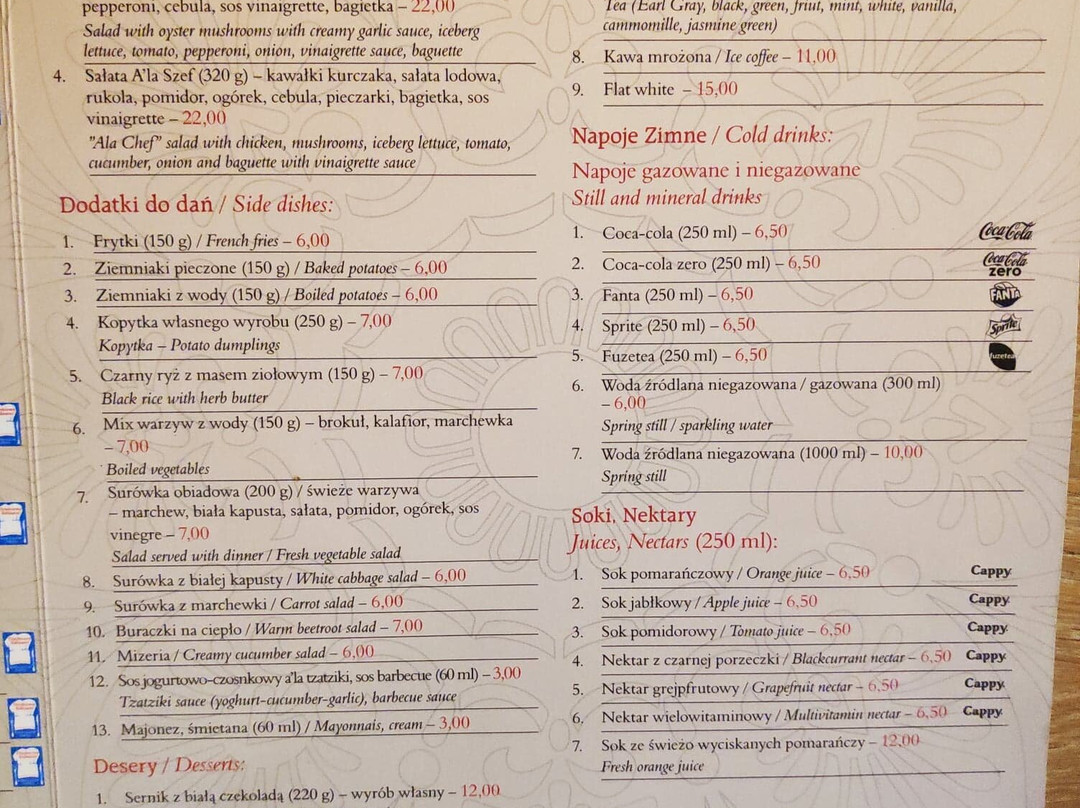 pepperoni, cebula, sos vinaigrette, bagietka – 22,00
Salad with oyster mushrooms with creamy garlic sauce, iceberg
lettuce, tomato, pepperoni, onion, vinaigrette sauce, baguette
4. Sałata A'la Szef (320 g) – kawałki kurczaka, sałata lodowa,
rukola, pomidor, ogórek, cebula, pieczarki, bagietka, sos
vinaigrette – 22,00
"Ala Chef" salad with chicken, mushrooms, iceberg lettuce, tomato,
cucumber, onion and baguette with vinaigrette sauce
Dodatki do dań / Side dishes:
1. Frytki (150 g) / French fries – 6,00
2. Ziemniaki pieczone (150 g) / Baked potatoes – 6,00
3. Ziemniaki z wody (150 g) / Boiled potatoes – 6,00
4. Kopytka własnego wyrobu (250 g) – 7,00
Kopytka – Potato dumplings
5. Czarny ryż z masem ziołowym (150 g) – 7,00
Black rice with herb butter
6. Mix warzyw z wody (150 g) – brokuł, kalafior, marchewka
– 7,00
Boiled vegetables
7. Surówka obiadowa (200 g) / świeże warzywa
– marchew, biała kapusta, sałata, pomidor, ogórek, sos
vinegre – 7,00
Salad served with dinner / Fresh vegetable salad
8. Surówka z białej kapusty / White cabbage salad – 6,00
9. Surówka z marchewki / Carrot salad – 6,00
10. Buraczki na ciepło / Warm beetroot salad – 7,00
11. Mizeria / Creamy cucumber salad – 6,00
12. Sos jogurtowo-czosnkowy a'la tzatziki, sos barbecue (60 ml) – 3,00
Tzatziki sauce (yoghurt-cucumber-garlic), barbecue sauce
13. Majonez, śmietana (60 ml) / Mayonnais, cream – 3,00
Desery / Desserts:
1. Sernik z białą czekoladą (220 g) – wyrób własny – 12,00
Tea (Earl Gray, black, green, friut, mint, white, vanilla,
cammomille, jasmine green)
8. Kawa mrożona / Ice coffee – 11,00
9. Flat white – 15,00
Napoje Zimne / Cold drinks:
Napoje gazowane i niegazowane
Still and mineral drinks
1. Coca-cola (250 ml) – 6,50 Coca-Cola
2. Coca-cola zero (250 ml) – 6,50 Coca-Cola zero
3. Fanta (250 ml) – 6,50 FANTA
4. Sprite (250 ml) – 6,50 Sprite
5. Fuzetea (250 ml) – 6,50 fuzetea
6. Woda źródlana niegazowana / gazowana (300 ml)
– 6,00
Spring still / sparkling water
7. Woda źródlana niegazowana (1000 ml) – 10,00
Spring still
Soki, Nektary
Juices, Nectars (250 ml):
1. Sok pomarańczowy / Orange juice – 6,50 Cappy
2. Sok jabłkowy / Apple juice – 6,50 Cappy
3. Sok pomidorowy / Tomato juice – 6,50 Cappy
4. Nektar z czarnej porzeczki / Blackcurrant nectar – 6,50 Cappy
5. Nektar grejpfrutowy / Grapefruit nectar – 6,50 Cappy
6. Nektar wielowitaminowy / Multivitamin nectar – 6,50 Cappy
7. Sok ze świeżo wyciskanych pomarańczy – 12,00
Fresh orange juice